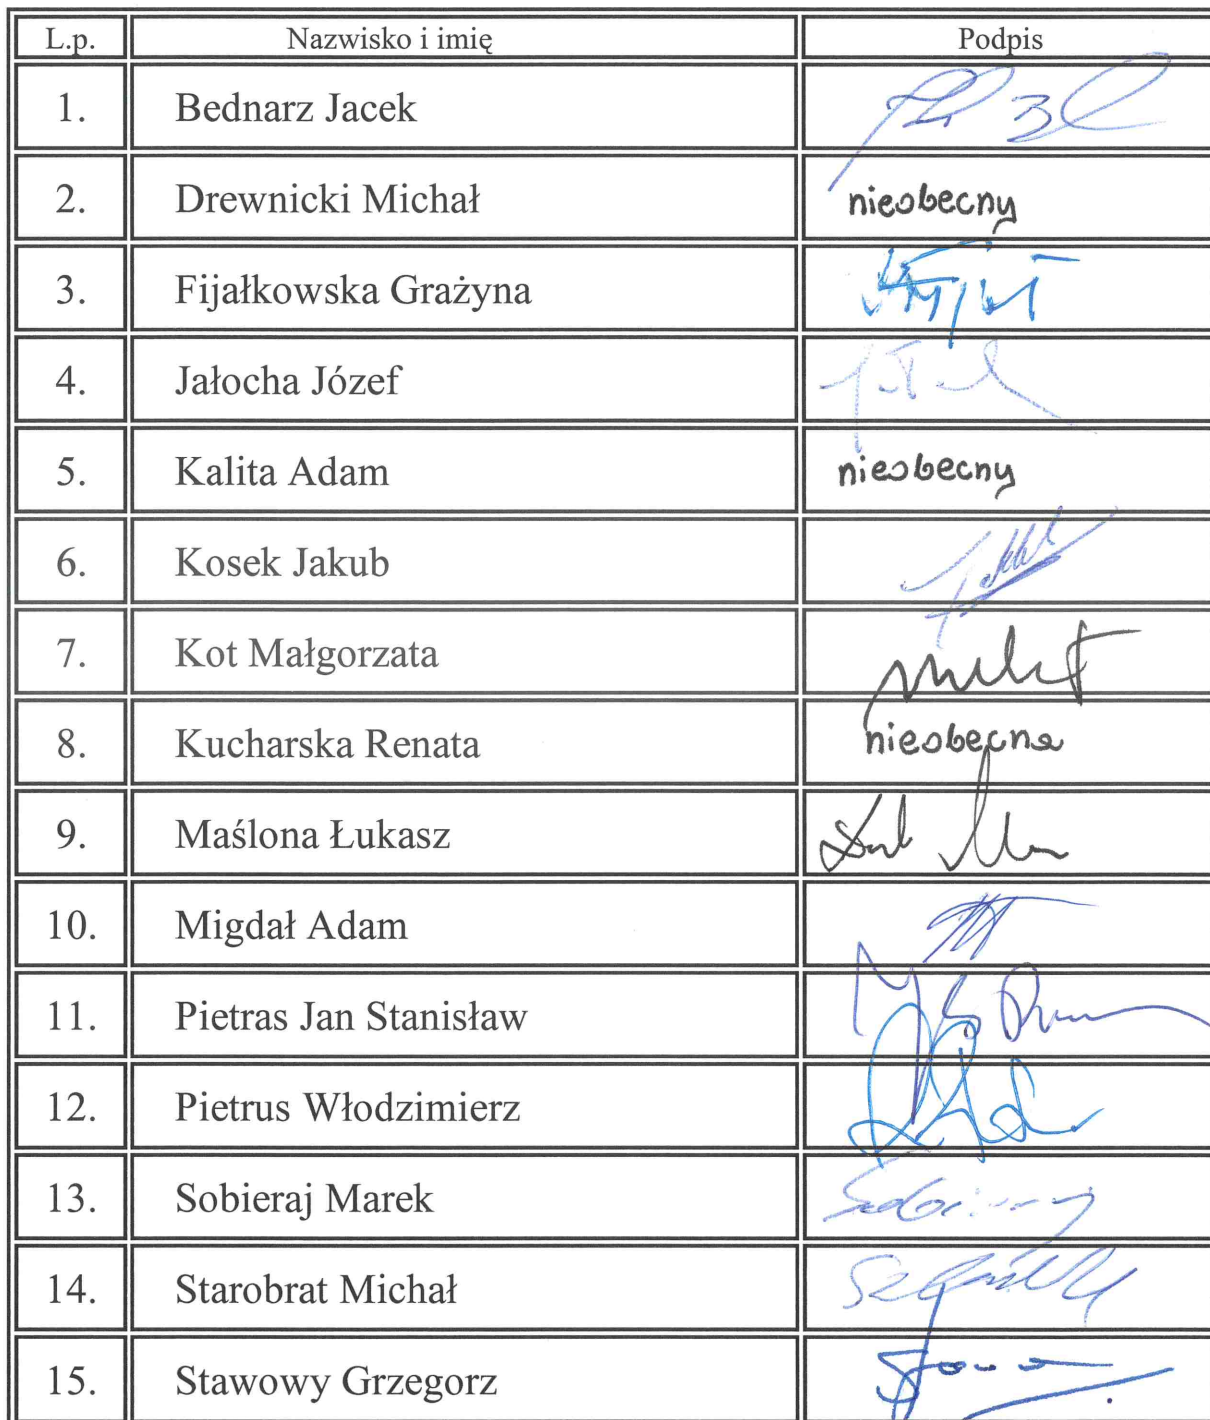 L.p. Nazwisko i imię Podpis
1. Bednarz Jacek
2. Drewnicki Michał nieobecny
3. Fijałkowska Grażyna
4. Jałocha Józef
5. Kalita Adam nieobecny
6. Kosek Jakub
7. Kot Małgorzata
8. Kucharska Renata nieobecna
9. Maślona Łukasz
10. Migdał Adam
11. Pietras Jan Stanisław
12. Pietrus Włodzimierz
13. Sobieraj Marek
14. Starobrat Michał
15. Stawowy Grzegorz